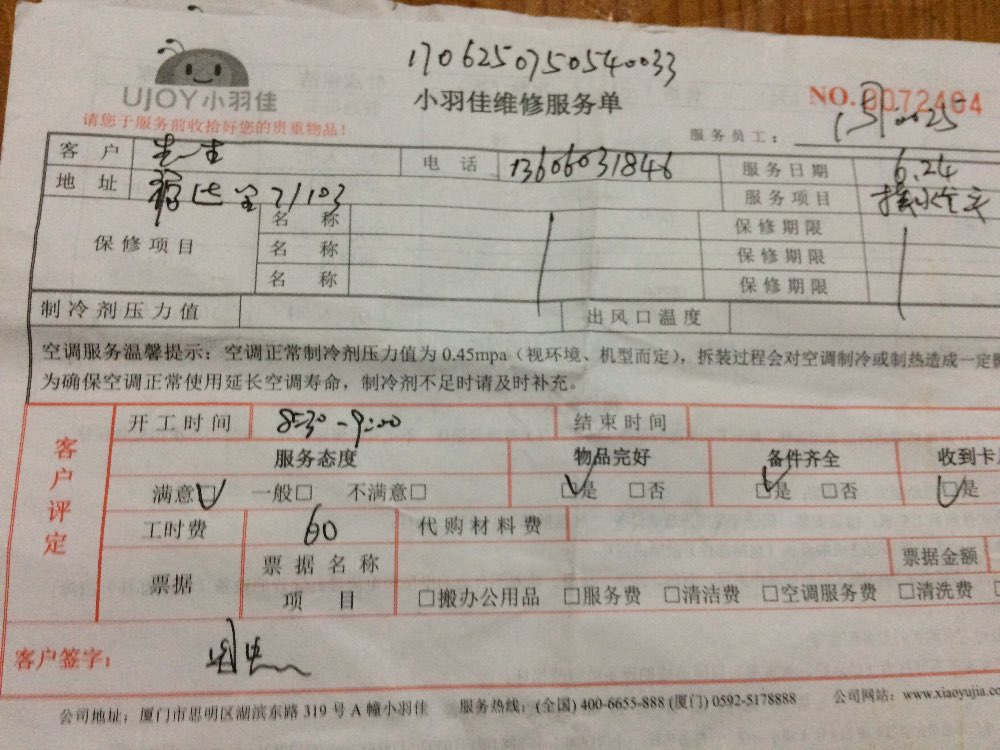 1706250750540033
UJOY小羽佳
小羽佳维修服务单
NO.0072404
请您于服务前收拾好您的贵重物品!
服务员工:
客 户 电 话 13606031846 服务日期 6.24
地 址 2/103 服务项目
保修项目 名 称 保修期限
名 称 保修期限
名 称 保修期限
制冷剂压力值 出风口温度
空调服务温馨提示:空调正常制冷剂压力值为 0.45mpa(视环境、机型而定),拆装过程会对空调制冷或制热造成一定
为确保空调正常使用延长空调寿命,制冷剂不足时请及时补充。
客户评定
开工时间 8:30-9:00 结束时间
服务态度 物品完好 备件齐全 收到卡
满意□ 一般□ 不满意□ □是 □否 □是 □否 □是
工时费 60 代购材料费
票据 票据名称 票据金额
项 目 □搬办公用品 □服务费 □清洁费 □空调服务费 □清洗费
客户签字:
公司地址:厦门市思明区湖滨东路 319 号 A 幢小羽佳 服务热线:(全国) 400-6655-888 (厦门) 0592-5178888 公司网站:www.xiaoyujia.com